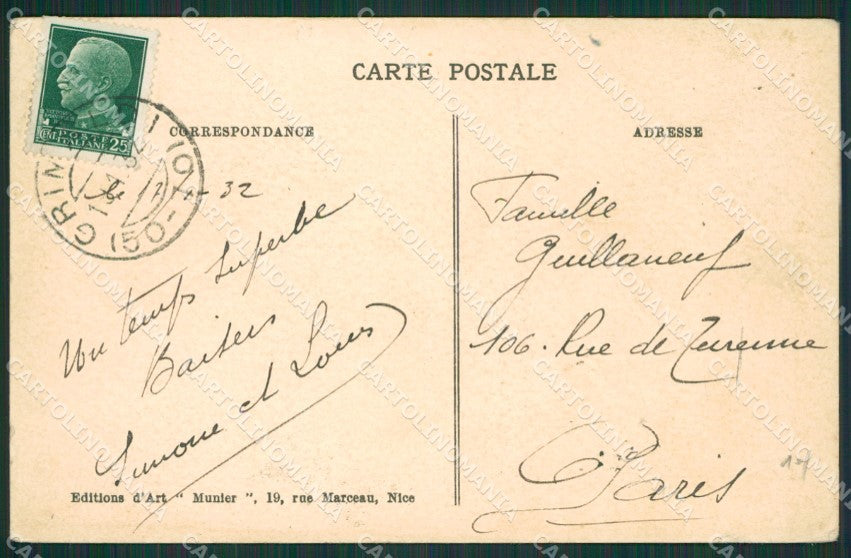 CARTE POSTALE
CORRESPONDANCE
ADRESSE
POSTE
ITALIANE
CENT. 25
GRIM
(50-10)
32
Un temps superbe
Baisers
Simone et Louis
Famille
Guillaneuf
106. Rue de Turenne
Paris
17
Editions d'Art " Munier ", 19, rue Marceau, Nice
CARTOLINOMANIA